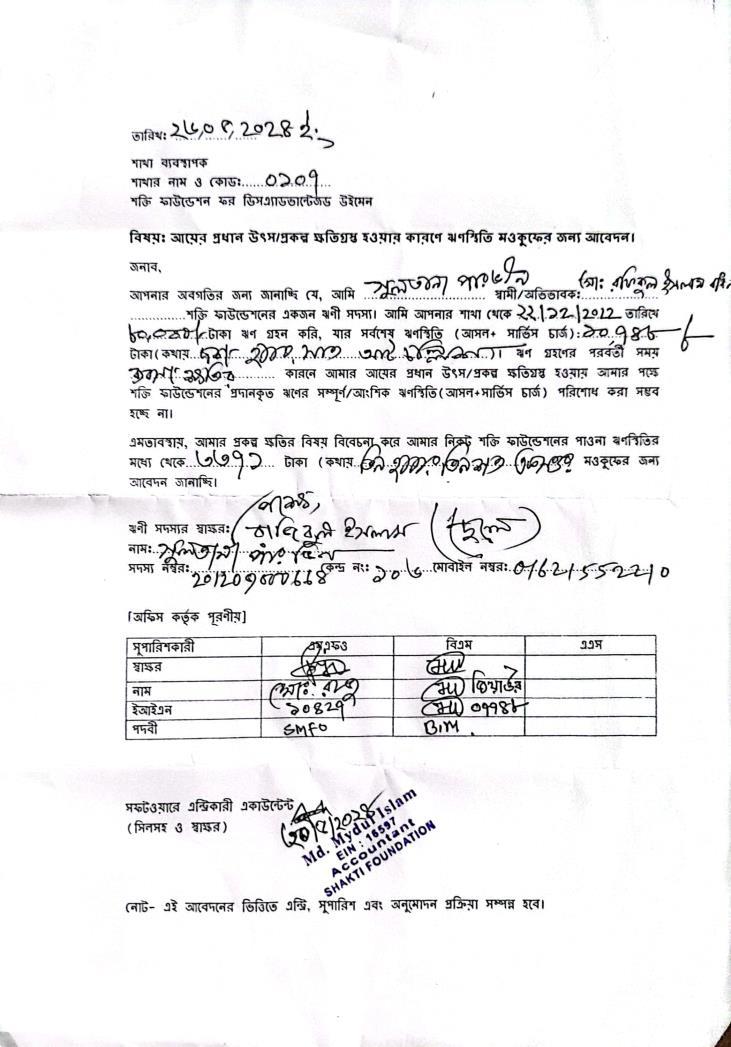 তারিখ: ২৬,০৫,২০২৪ ইং
শাখা ব্যবস্থাপক
শাখার নাম ও কোড:......০২০৭......
শক্তি ফাউন্ডেশন ফর ডিসএ্যাডভান্টেজড উইমেন
বিষয়: আয়ের প্রধান উৎস/প্রকল্প ক্ষতিগ্রস্থ হওয়ার কারণে ঋণস্থিতি মওকুফের জন্য আবেদন।
জনাব,
আপনার অবগতির জন্য জানাচ্ছি যে, আমি সুলতানা পারভীন স্বামী/অভিভাবক: মো: রফিকুল ইসলাম
শক্তি ফাউন্ডেশনের একজন ঋণী সদস্য। আমি আপনার শাখা থেকে ২২/১২/২০২২ তারিখে
টাকা ঋণ গ্রহন করি, যার সর্বশেষ ঋণস্থিতি (আসল+ সার্ভিস চার্জ):
টাকা (কথায় দশ হাজার সাত শত আট চল্লিশ টাকা। ঋণ গ্রহণের পরবর্তী সময়
কারনে আমার আয়ের প্রধান উৎস/প্রকল্প ক্ষতিগ্রস্ত হওয়ায় আমার পক্ষে
শক্তি ফাউন্ডেশনের প্রদানকৃত ঋণের সম্পূর্ণ/আংশিক ঋণস্থিতি(আসল+সার্ভিস চার্জ) পরিশোধ করা সম্ভব
হচ্ছে না।
এমতাবস্থায়, আমার প্রকল্প ক্ষতির বিষয় বিবেচনা করে আমার নিকট শক্তি ফাউন্ডেশনের পাওনা ঋণস্থিতির
মধ্যে থেকে টাকা (কথায় তিন হাজার তিন শত মওকুফের জন্য
আবেদন জানাচ্ছি।
ঋণী সদস্যর স্বাক্ষর: ইসলাম (ছেলে)
নাম: সুলতানা পারভিন
সদস্য নম্বর: কেন্দ্র নং: ১০৬ মোবাইল নম্বর: 01621552210
[অফিস কর্তৃক পূরণীয়]
সুপারিশকারী এসএফও বিএম এএস
স্বাক্ষর
নাম মো:
ইআইএন ১০৪২৭ ০৭৭৪৮
পদবী SMFO B.M
সফটওয়ারে এন্ট্রিকারী একাউন্টেন্ট
(সিলসহ ও স্বাক্ষর)
Md. Mydul Islam
EIN : 16597
Accountant
SHAKTI FOUNDATION
নোট- এই আবেদনের ভিত্তিতে এন্ট্রি, সুপারিশ এবং অনুমোদন প্রক্রিয়া সম্পন্ন হবে।